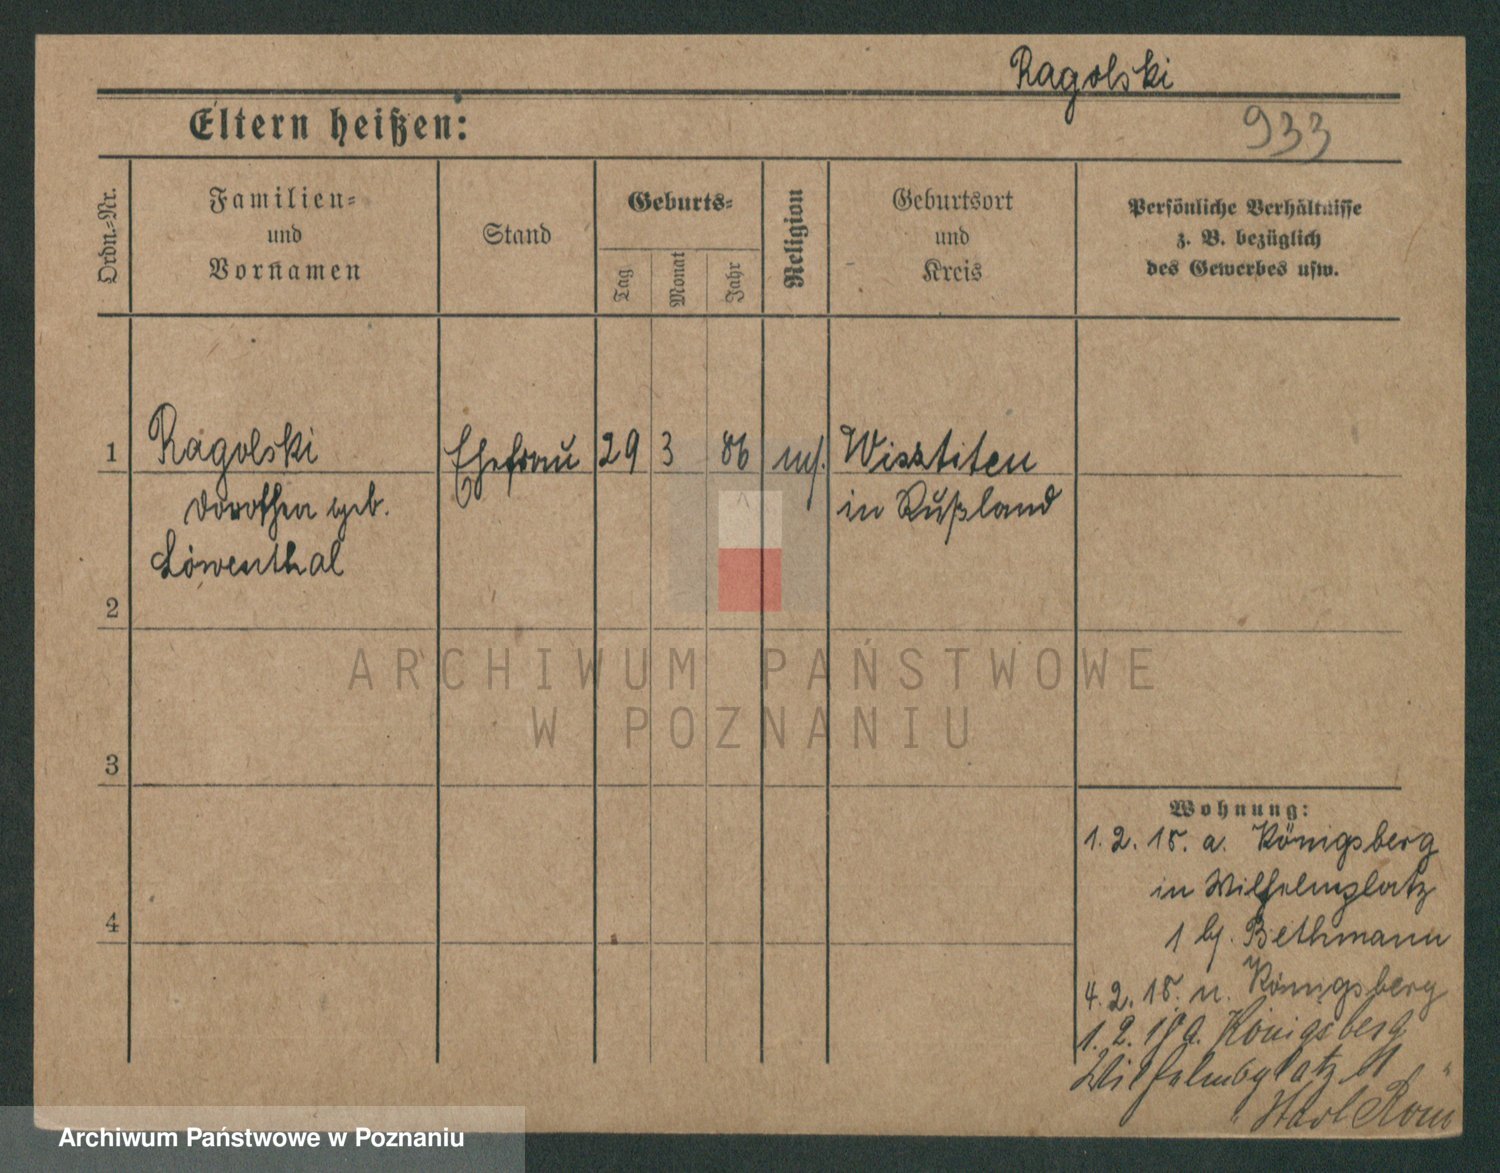 Ragolski
Eltern heißen:
933
Ordn.-Nr.
Familien-
und
Vornamen
Stand
Geburts-
Tag
Monat
Jahr
Religion
Geburtsort
und
Kreis
Persönliche Verhältnisse
z. B. bezüglich
des Gewerbes usw.
1 Ragolski Ehefrau 29 3 86 Wisztiten
Dorothea geb. in Rußland
Löwenthal
2
ARCHIWUM PAŃSTWOWE
W POZNANIU
3
Wohnung:
1. 2. 18. a. Königsberg
in Wilhelmplatz
4
1 bj. Bethmann
4. 2. 18. n. Königsberg
1. 2. 18 a. Königsberg
Wilhelmsplatz
Archiwum Państwowe w Poznaniu